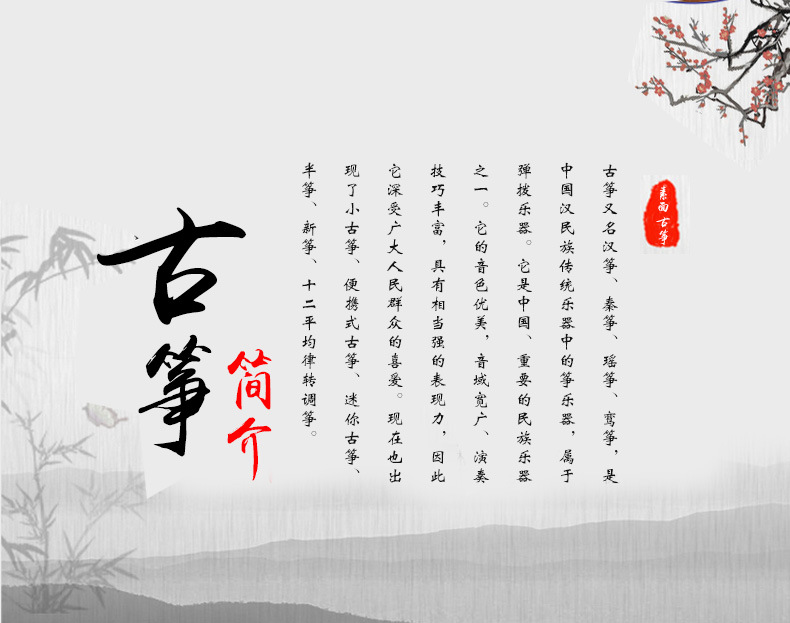 素面古筝
古筝又名汉筝、秦筝、瑶筝、鸾筝，是
中国汉民族传统乐器中的筝乐器，属于
弹拨乐器。它是中国、重要的民族乐器
之一。它的音色优美，音域宽广、演奏
技巧丰富，具有相当强的表现力，因此
它深受广大人民群众的喜爱。现在也出
现了小古筝、便携式古筝、迷你古筝、
半筝、新筝、十二平均律转调筝。
古筝
简介